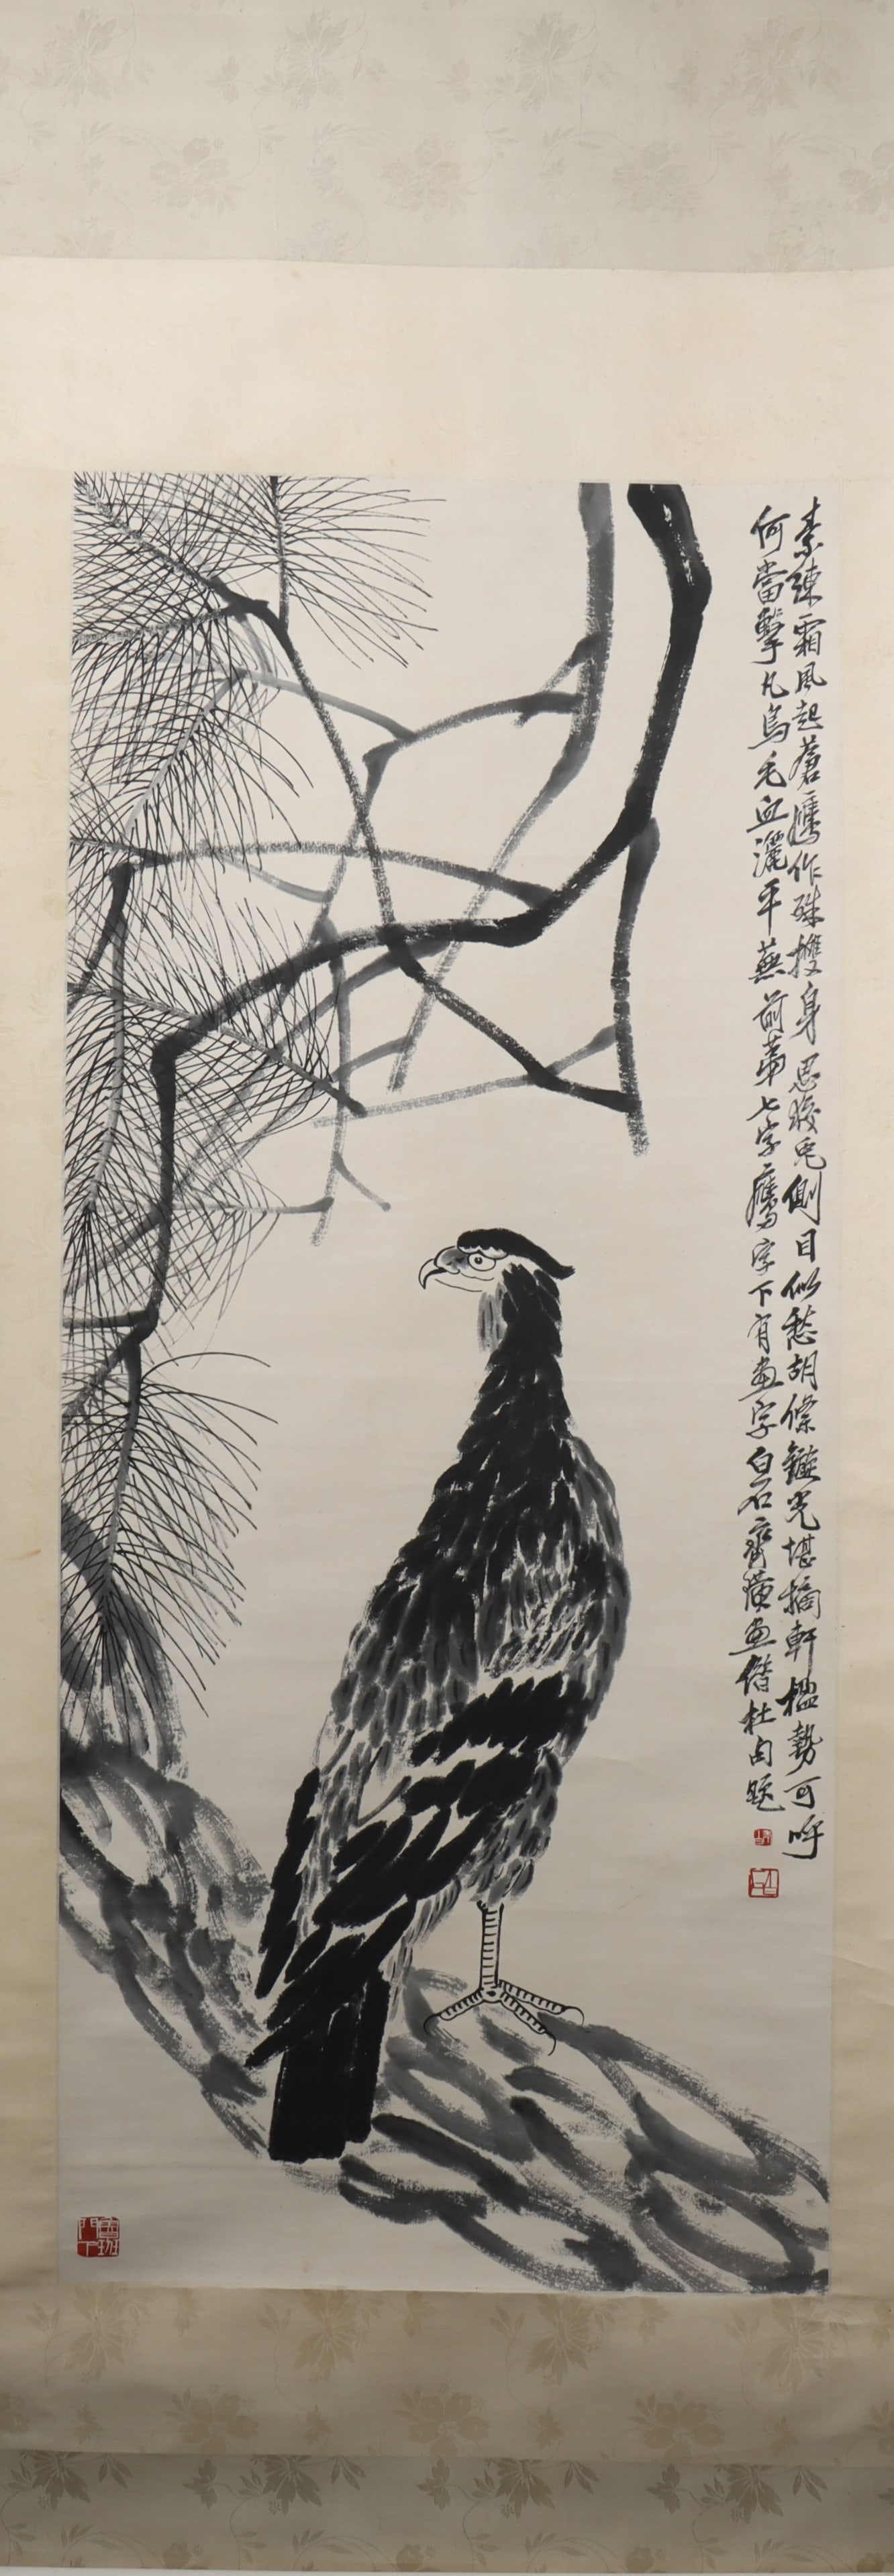 素練霜風起蒼鷹作殊㩳身思狡兔側目似愁胡絛鏇光堪摘軒楹勢可呼
何當擊凡鳥毛血灑平蕪前第七字鷹字下有畫字白石齊璜畫借杜句題
魯班門下